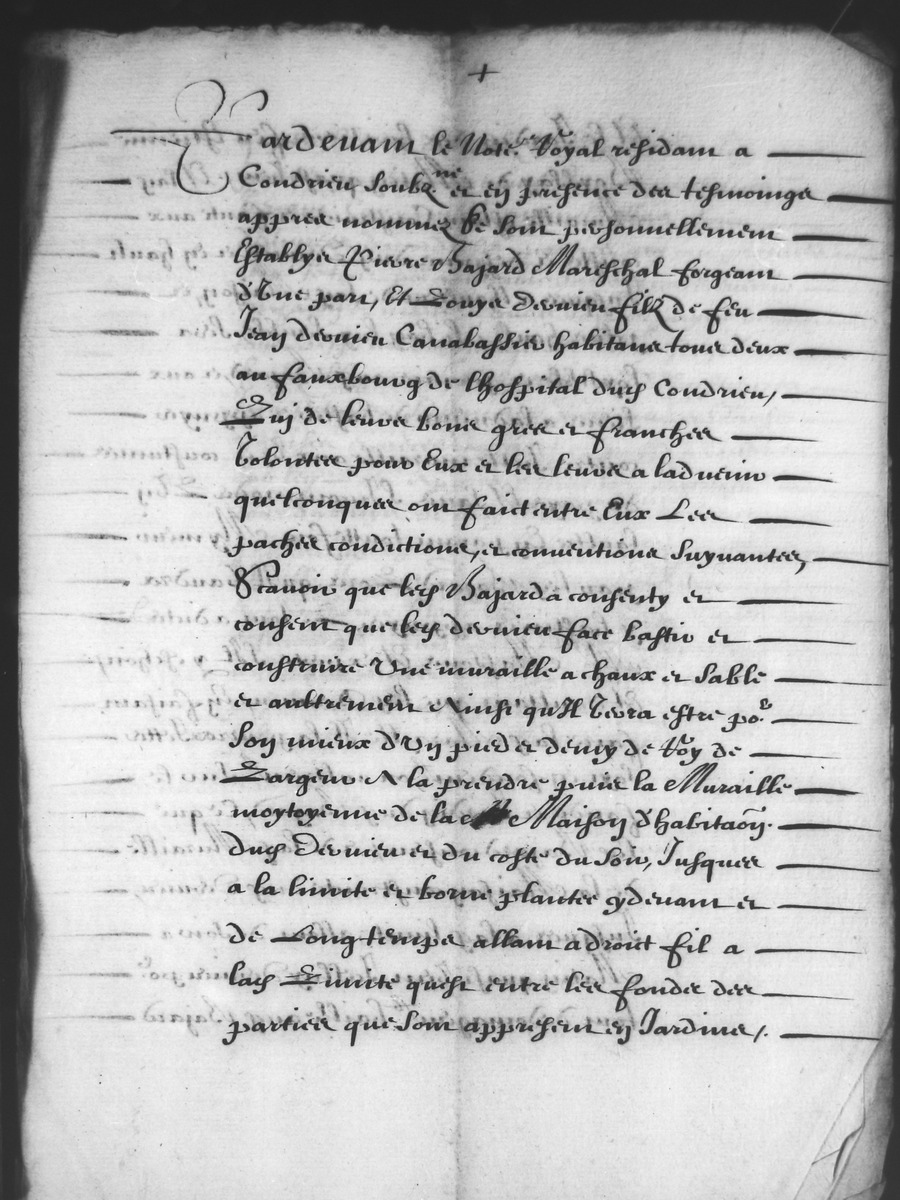 +
Pardevant le Notre. Royal residant a
Condrien soubzne et en presence des tesmoings
appres nommez se sont personnellement
establys Pierre Bajard Mareschal forgeant
d'Une part, Et Louys dervieu filz de feu
Jean dervieu Canabassier habitans tous deux
au fauxbourg de lhospital dud Condrieu,
Qui de leurs bons gres et franches
Volontes pour Eux et les leurs a ladvenir
quelconques ont faict entre Eux Les
paches condictions, et conventions suyvantes,
Scavoir que led Bajard a consenty et
consent que led dervieu face bastir et
construire Une muraille a chaux et sable
et aultrement Ainsi qu'Il Verra estre por.
son mieux d'Un pied et demy de Roy de
Largeur A la prendre puis la Muraille
moytoyenne de la Maison d'habitaon.
dud Dervieu et du costé du soir, Jusques
a la limite et borne plantée cydevant et
de Longtemps allant a droict fil a
lad Limite quest entre les fonds des
parties que sont appresent en Jardins,.